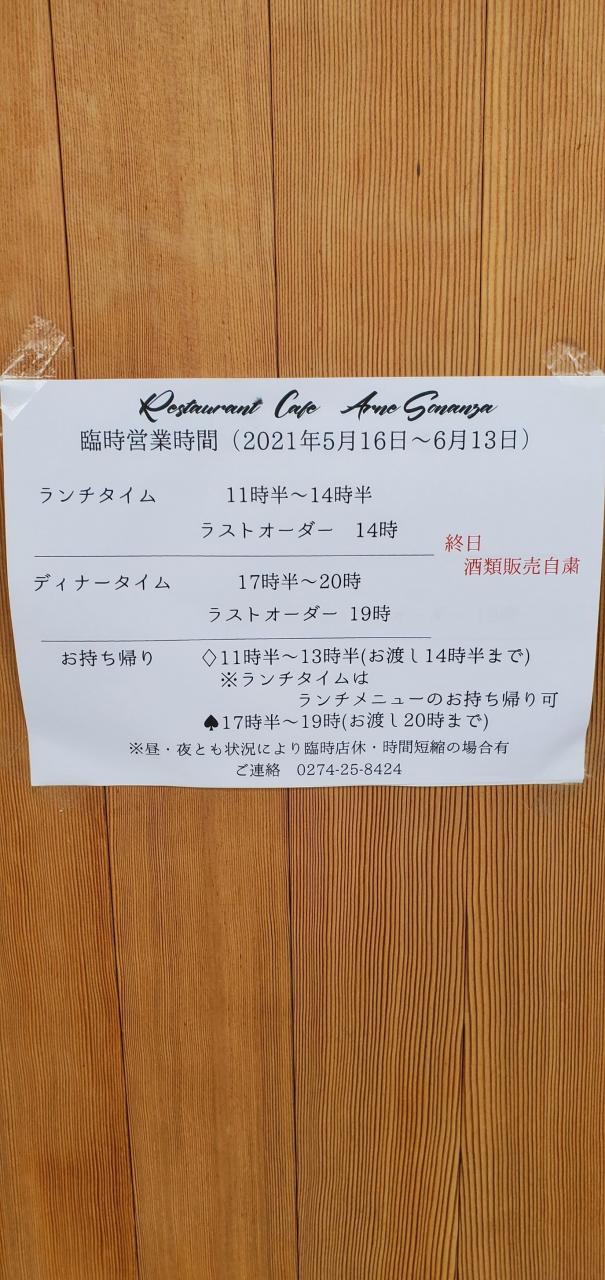 Restaurant Cafe Arne Sonanza
臨時営業時間（2021年5月16日～6月13日）
ランチタイム 11時半～14時半
ラストオーダー 14時
終日
酒類販売自粛
ディナータイム 17時半～20時
ラストオーダー 19時
お持ち帰り ♢11時半～13時半(お渡し14時半まで)
※ランチタイムは
ランチメニューのお持ち帰り可
♠17時半～19時(お渡し20時まで)
※昼・夜とも状況により臨時店休・時間短縮の場合有
ご連絡 0274-25-8424